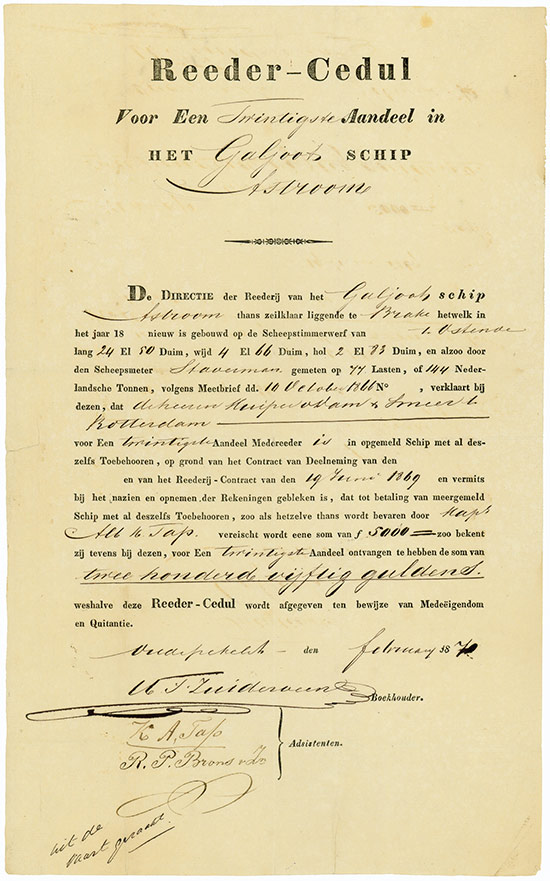 Reeder-Cedul
Voor Een Twintigste Aandeel in
HET Galjoot SCHIP
Astroom
DE DIRECTIE der Reederij van het Galjoot schip
Astroom thans zeilklaar liggende te Brake hetwelk in
het jaar 18 nieuw is gebouwd op de Scheepstimmerwerf van t. Ostende
lang 24 El 50 Duim, wijd 4 El 66 Duim, hol 2 El 83 Duim, en alzoo door
den Scheepsmeter Staverman gemeten op 77 Lasten, of 144 Neder-
landsche Tonnen, volgens Meetbrief dd. 10 October 1866 No , verklaart bij
dezen, dat de heeren Kuiper v Dam & Smeer te
Rotterdam
voor Een twintigste Aandeel Medereeder is in opgemeld Schip met al des-
zelfs Toebehooren, op grond van het Contract van Deelneming van den
en van het Reederij-Contract van den 19 Juni 1869 en vermits
bij het nazien en opnemen der Rekeningen gebleken is, dat tot betaling van meergemeld
Schip met al deszelfs Toebehooren, zoo als hetzelve thans wordt bevaren door Kapt
Alb K Tap. vereischt wordt eene som van f 5000 = zoo bekent
zij tevens bij dezen, voor Een twintigste Aandeel ontvangen te hebben de som van
twee honderd vijftig guldens.
weshalve deze Reeder-Cedul wordt afgegeven ten bewijze van Medeëigendom
en Quitantie.
Oudepekela - den februarij 1870
Boekhouder.
K A. Tap
R. P. Brons
Adsistenten.
uit de
vaart geraakt.